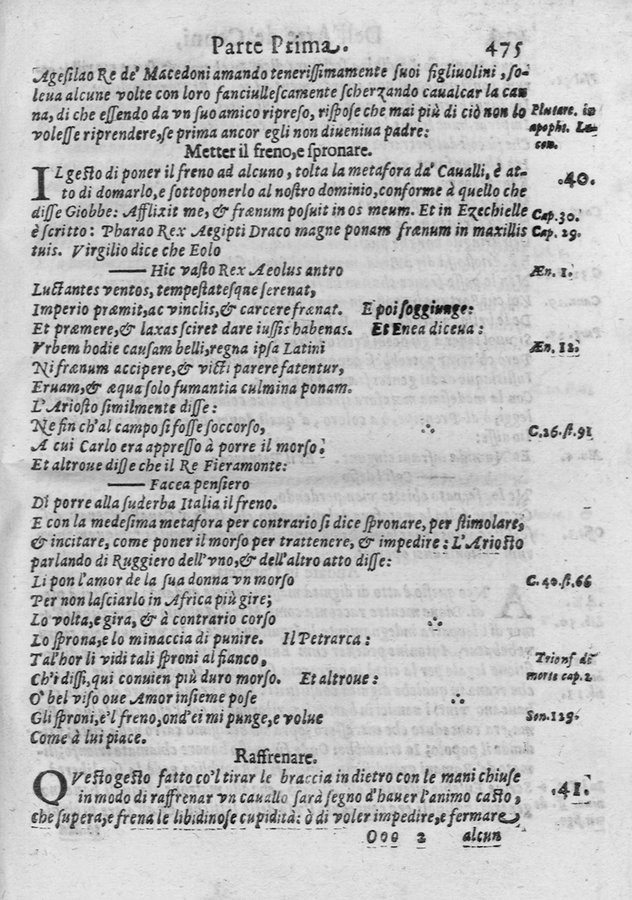 Parte Prima. 475
Agesilao Re de' Macedoni amando tenerissimamente suoi figliuolini, so-
leua alcune volte con loro fanciullescamente scherzando caualcar la can
na, di che essendo da vn suo amico ripreso, rispose che mai più di ciò non lo
Plutarc. in
volesse riprendere, se prima ancor egli non diueniua padre:
apopht. La-
con.
Metter il freno, e spronare.
IL gesto di poner il freno ad alcuno, tolta la metafora da' Caualli, è at-
.40.
to di domarlo, e sottoponerlo al nostro dominio, conforme à quello che
disse Giobbe: Afflixit me, & frænum posuit in os meum. Et in Ezechielle
Cap.30.
è scritto: Pharao Rex Aegipti Draco magne ponam frænum in maxillis
Cap. 29.
tuis. Virgilio dice che Eolo
—— Hic vasto Rex Aeolus antro
Æn. 1.
Luctantes ventos, tempestatesque serenat,
Imperio præmit, ac vinclis, & carcere frænat. E poi soggiunge:
Et præmere, & laxas sciret dare iussis habenas. Et Enea diceua:
Vrbem hodie causam belli, regna ipsa Latini
Æn. 12.
Ni frænum accipere, & victi parere fatentur,
Eruam, & æqua solo fumantia culmina ponam.
L'Ariosto similmente disse:
Ne fin ch'al campo si fosse soccorso,
C.26.st.91
A cui Carlo era appresso à porre il morso.
Et altroue disse che il Re Fieramonte:
—— Facea pensiero
Di porre alla suderba Italia il freno.
E con la medesima metafora per contrario si dice spronare, per stimolare,
& incitare, come poner il morso per trattenere, & impedire: L'Ariosto
parlando di Ruggiero dell'vno, & dell'altro atto disse:
Li pon l'amor de la sua donna vn morso
C.40.st.66
Per non lasciarlo in Africa più gire;
Lo volta, e gira, & à contrario corso
Lo sprona, e lo minaccia di punire. Il Petrarca:
Tal'hor li vidi tali sproni al fianco,
Trionf dẽ
Ch'i dissi, qui conuien più duro morso. Et altroue:
morte cap.2
O' bel viso oue Amor insieme pose
Gli sproni, e'l freno, ond'ei mi punge, e volue
Son.129.
Come à lui piace.
Raffrenare.
QVesto gesto fatto co'l tirar le braccia in dietro con le mani chiuse
.41.
in modo di raffrenar vn cauallo sarà segno d'hauer l'animo casto,
che supera, e frena le libidinose cupidità: ò di voler impedire, e fermare
Ooo 2 alcun